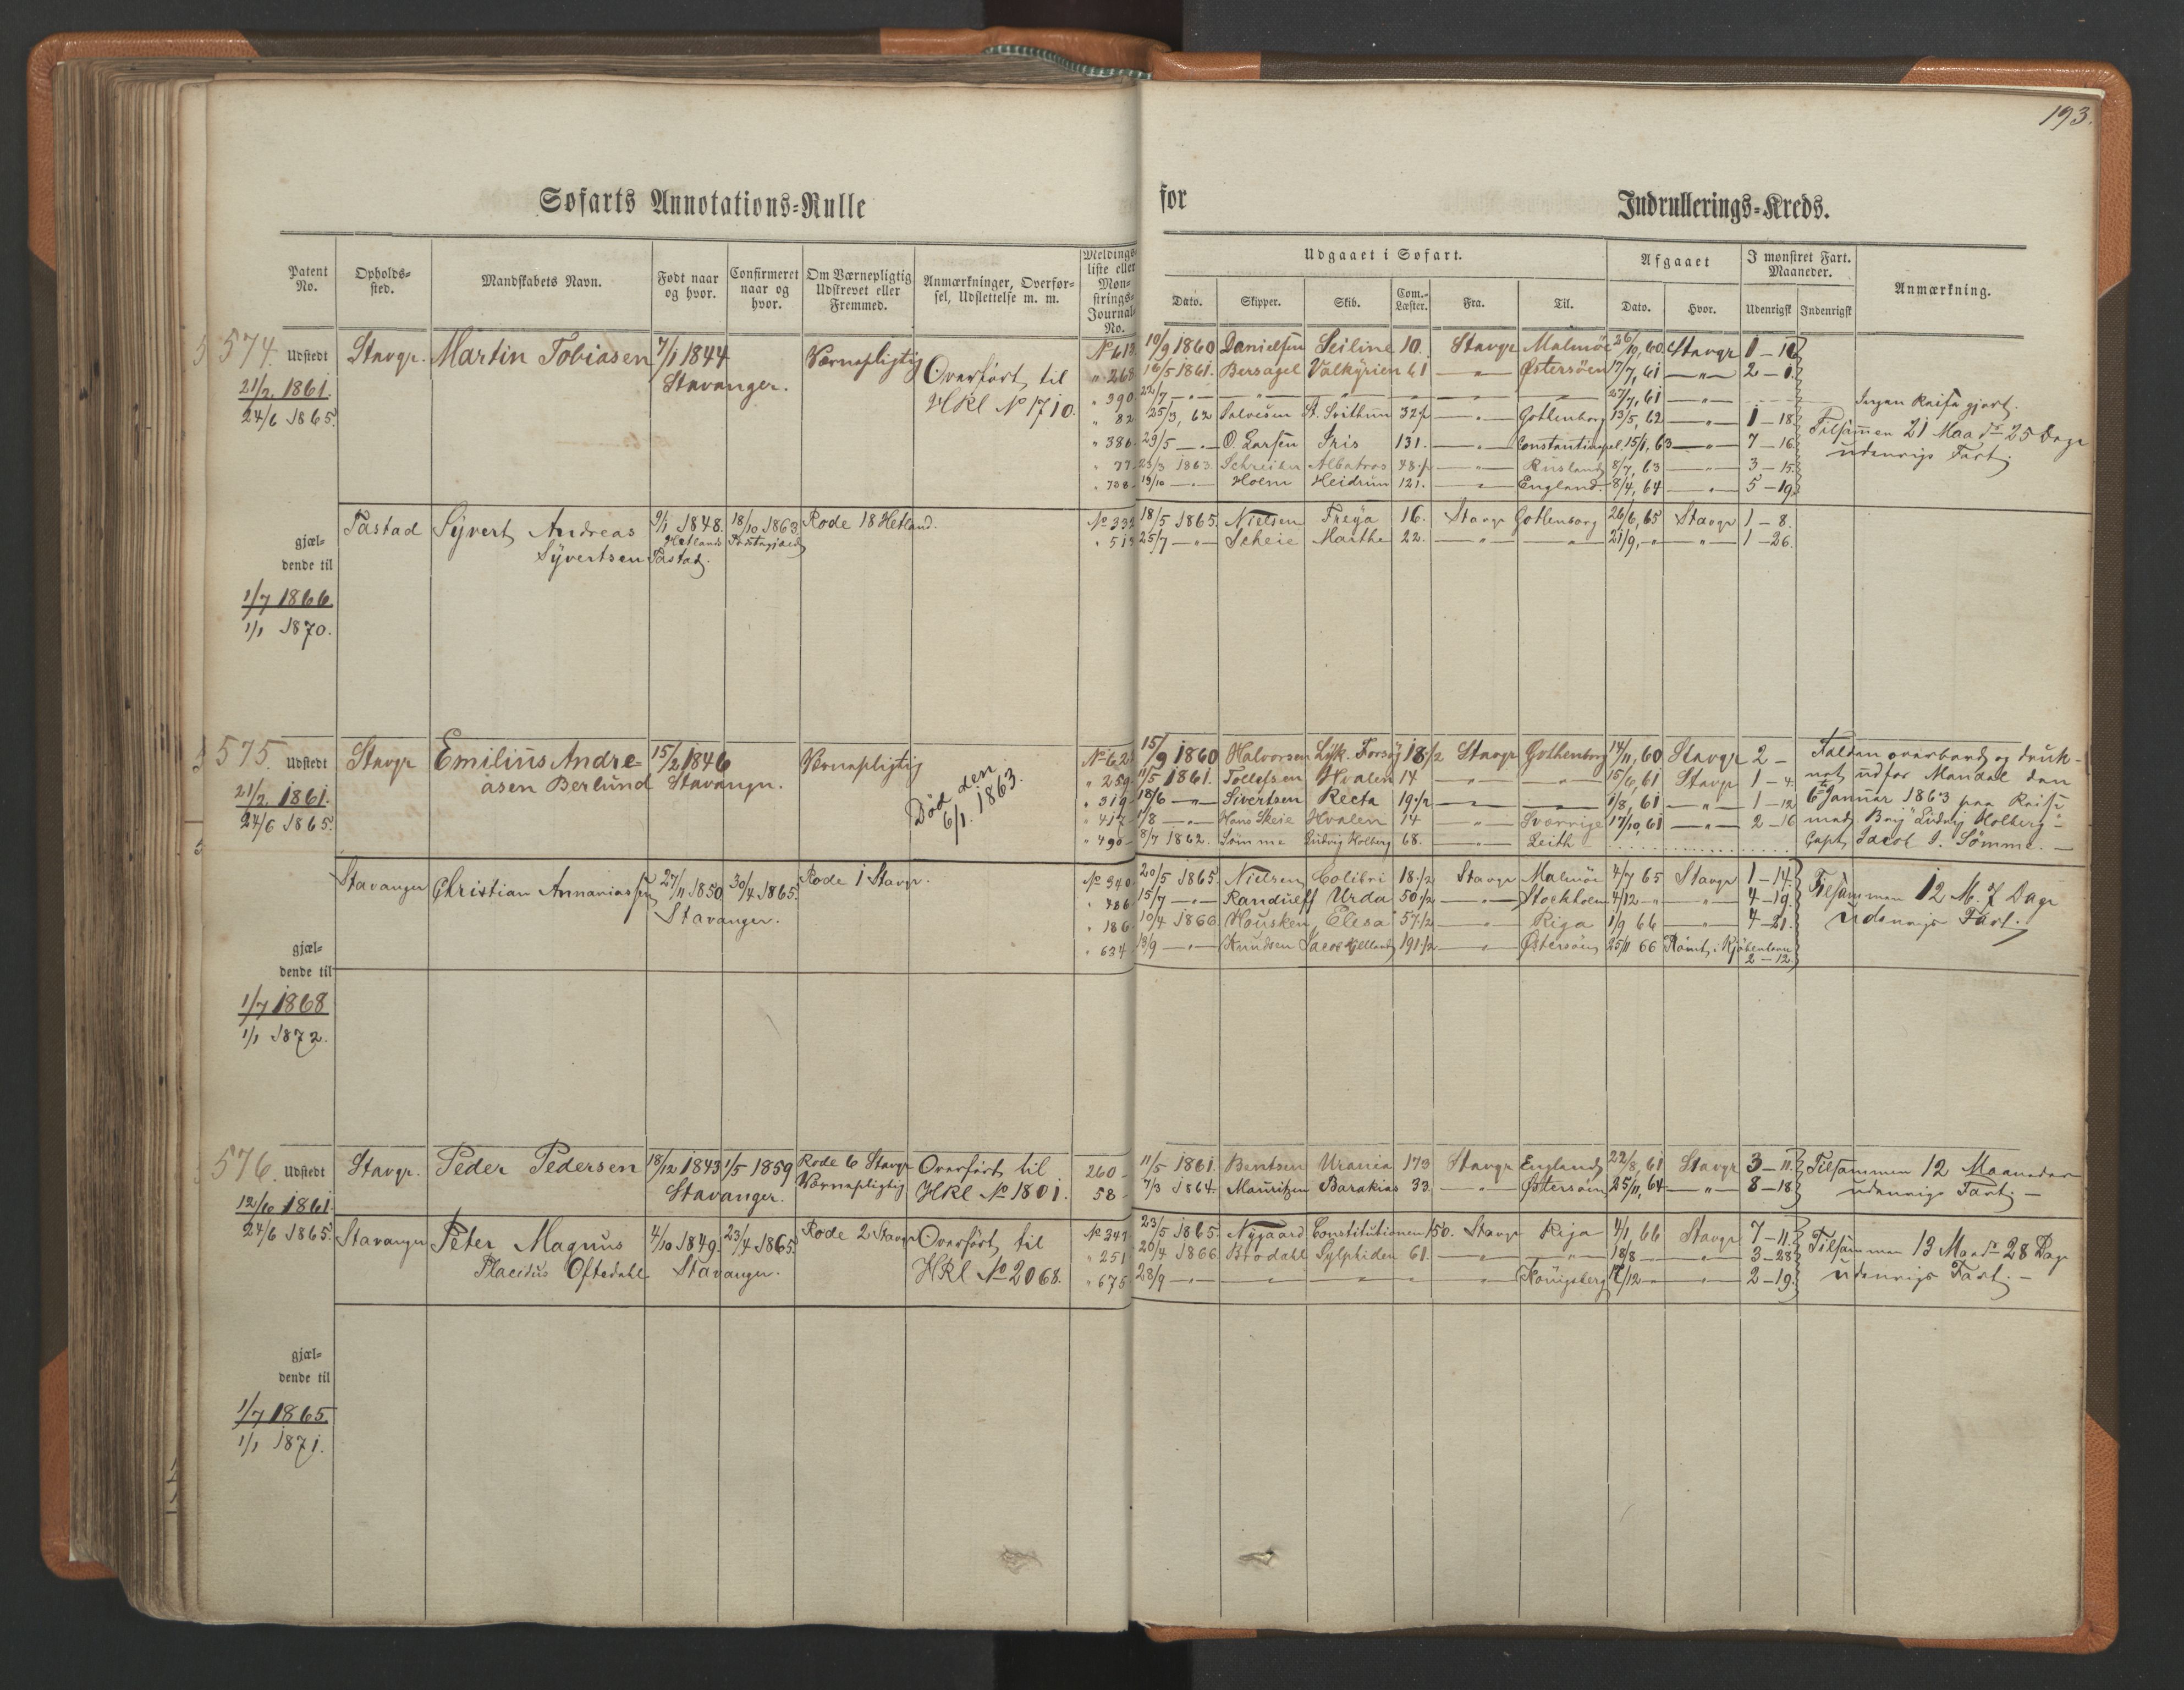 193.
Søfarts Annotations=Rulle for Indrullerings=Kreds.
Patent No.
Opholds=sted.
Mandskabets Navn.
Født naar og hvor.
Confirmeret naar og hvor.
Om Værnepligtig Udskrevet eller Fremmed.
Anmærkninger, Overfør=sel, Udslettelse m. m.
Meldings=liste eller Mon=strings=Journal No.
Udgaaet i Søfart.
Dato. Skipper. Skib. Com.=Læster. Fra. Til.
Afgaaet
Dato. Hvor.
I mønstret Fart. Maaneder.
Udenrigst Indenrigst
Anmærkning.
574. Udstedt
21/2 1861.
24/6 1865.
Stavgr. Martin Tobiasen 7/1 1844 Stavanger. Værnepligtig
Overført til
HKl No 1710.
No 613. 10/9 1860 Danielsen Seiline 10. Stavgr Malmöe 26/10, 60 Stavgr
" 268 16/5 1861. Bersagel Valkyrien 61 — " — Østersöen 17/7, 61 — " — 2 –
" 390 22/7 — " — 27/7, 61 — " — Ingen Reise gjort.
" 82 25/3, 62 Salvesen St. Svithun 32½ — " — Gothenborg 13/5, 62 — " — 1 – 18
" 386 29/5 — " — O Larsen Iris 131. — " — Constantinopel 15/1, 63 — " — 7 – 16
" 77 23/3 1863. Schreiber Albatros 48½ — " — Rusland 8/7, 63 — " — 3 – 15
" 708 19/10 — " — Holm Heidrun 121. — " — England. 8/4, 64 — " — 5 – 19
Tilsammen 21 Maadr 25 Dage
udenrigs Fart.
Tastad Syvert Andreas
Syvertsen
9/1 1848. Hetlands Tastad.
18/10 1863
Rode 18 Hetland.
No 332 18/5 1865. Nielsen Freya 16. Stavgr Gothenborg 26/6, 65 Stavgr 1 – 8.
" 513 25/7 — " — Scheie Marthe 22. — " — 21/9, — " — 1 – 26.
gjæl=
dende til
1/7 1866.
1/1 1870.
575. Udstedt
21/2 1861.
24/6 1865.
Stavgr Emilius Andre=
asen Berlund
15/2 1846
Stavangr.
Værnepligtig
Död den
6/1. 1863.
No 62 15/9 1860 Halvorsen Lyk. Forsög 18½ Stavgr Gothenborg 14/11, 60 Stavgr 2 –
" 259 11/5 1861. Tollefsen Hvalen 14 — " — 15/6, 61 Stavgr 1 – 4.
" 319 18/6 — " — Sivertsen Recta 19½ — " — 1/8, 61 — " — 1 – 12
" 417 1/8 — " — Hans Skeie Hvalen 14 — " — Sverrige 17/10, 61 — " — 2 – 16
" 490 8/7 1862. Sömme Ludvig Holberg 68. — " — Leith
Falden overbord og druk=
net udfor Mandal den
6te Januar 1863 paa Reise
med Brig "Ludvig Holberg"
Capt Jacob I. Sömme. —
Stavanger Christian Annaniassen 27/11 1850. Stavanger. 30/4 1865. Rode 1 Stavgr.
No 340 20/5 1865. Nielsen Colibri 18½ Stavgr Malmöe 4/7 65 Stavgr 1 – 14.
" 486 15/7 — " — Randulff Urda 50½ — " — Stockholm 4/12 — " — 4 – 19.
" 186 10/4 1866 Housken Elesa 57½ — " — Riga 1/9 66 — " — 4 – 21.
" 634 13/9 — " — Knudsen Jacob Kjelland 191½ — " — Østersöen 25/11 66 Römt i Kjöbenhavn
2 – 12.
Tilsammen 12 M. 7 Dage
udenrigs Fart.
gjæl=
dende til
1/7 1868
1/1 1872.
576. Udstedt
12/6 1861
24/6 1865.
Stavgr. Peder Pedersen 18/12 1843 Stavanger. 1/5 1859
Rode 6 Stavgr
Værnepligtig
Overført til
HKl No 1801.
260 11/5 1861. Bentsen Urania 173 Stavgr England 22/8, 61 Stavgr 3 – 11.
58 7/3 1864. Mauritzen Barakias 33. — " — Østersöen 25/11, 64 — " — 8 – 18
Tilsammen 12 Maaneder
udenrigs Fart. —
Stavanger Peter Magnus
Placidus Oftedahl
4/10 1849. Stavanger. 23/4 1865. Rode 2 Stavgr
Overført til
HKl No 2068.
No 347 23/5 1865. Nygaard Constitutionen 150. Stavgr Riga 4/1 66 Stavgr 7 – 11.
" 251 20/4 1866 Brodahl Sylphiden 61. — " — 18/8 — " — 3 – 28
" 675 28/9 — " — Königsberg 17/12 — " — 2 – 19.
Tilsammen 13 Maadr 28 Dage
udenrigs Fart. —
gjæl=
dende til
1/7 1865.
1/1 1871.